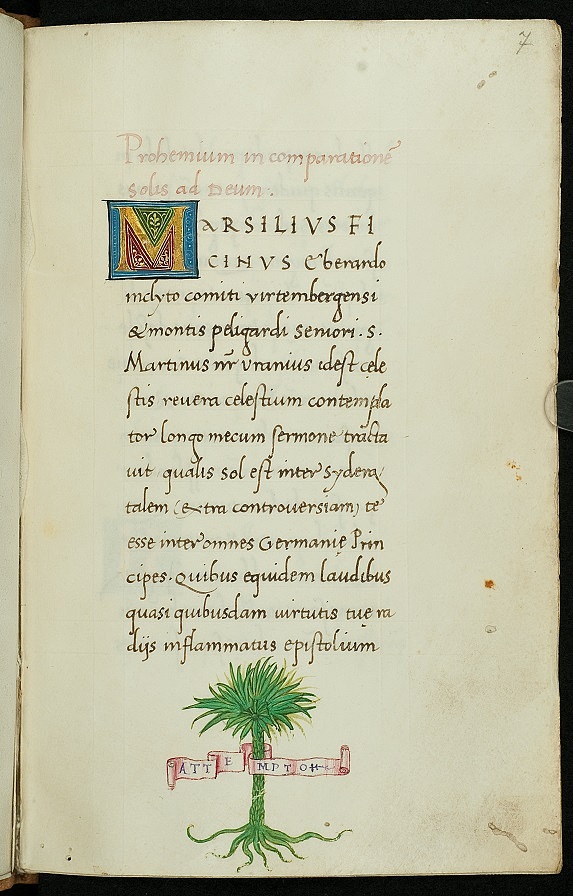 7
Prohemium in comparationē
solis ad Deum.
MARSILIVS FI
CINVS Eberardo
inclyto comiti virtembergensi
& montis peligardi seniori. S.
Martinus nr̄ vranius idest cele
stis revera celestium contempla
tor longo mecum sermone tracta
vit qualis sol est inter sydera
talem (extra controversiam) te
esse inter omnes Germanię Prin
cipes. Quibus equidem laudibus
quasi quibusdam virtutis tuę ra
diis inflammatus epistolium
ATTEMPTO